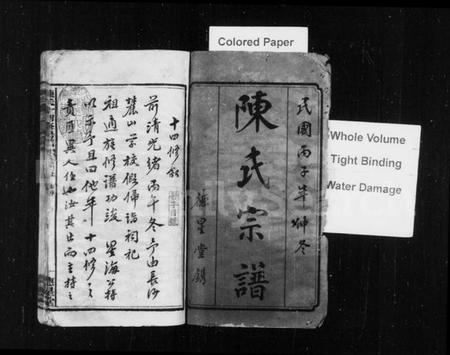 Colored Paper
Whole Volume
Tight Binding
Water Damage
民國丙子年仲冬
陳氏宗譜
星堂鐫
十四修敘
前清光緒丙午冬予由長沙
麓山学校假歸詣祠祀
祖適族修譜功竣 星海公将
以示予且曰他年十四修之
責匪異人任